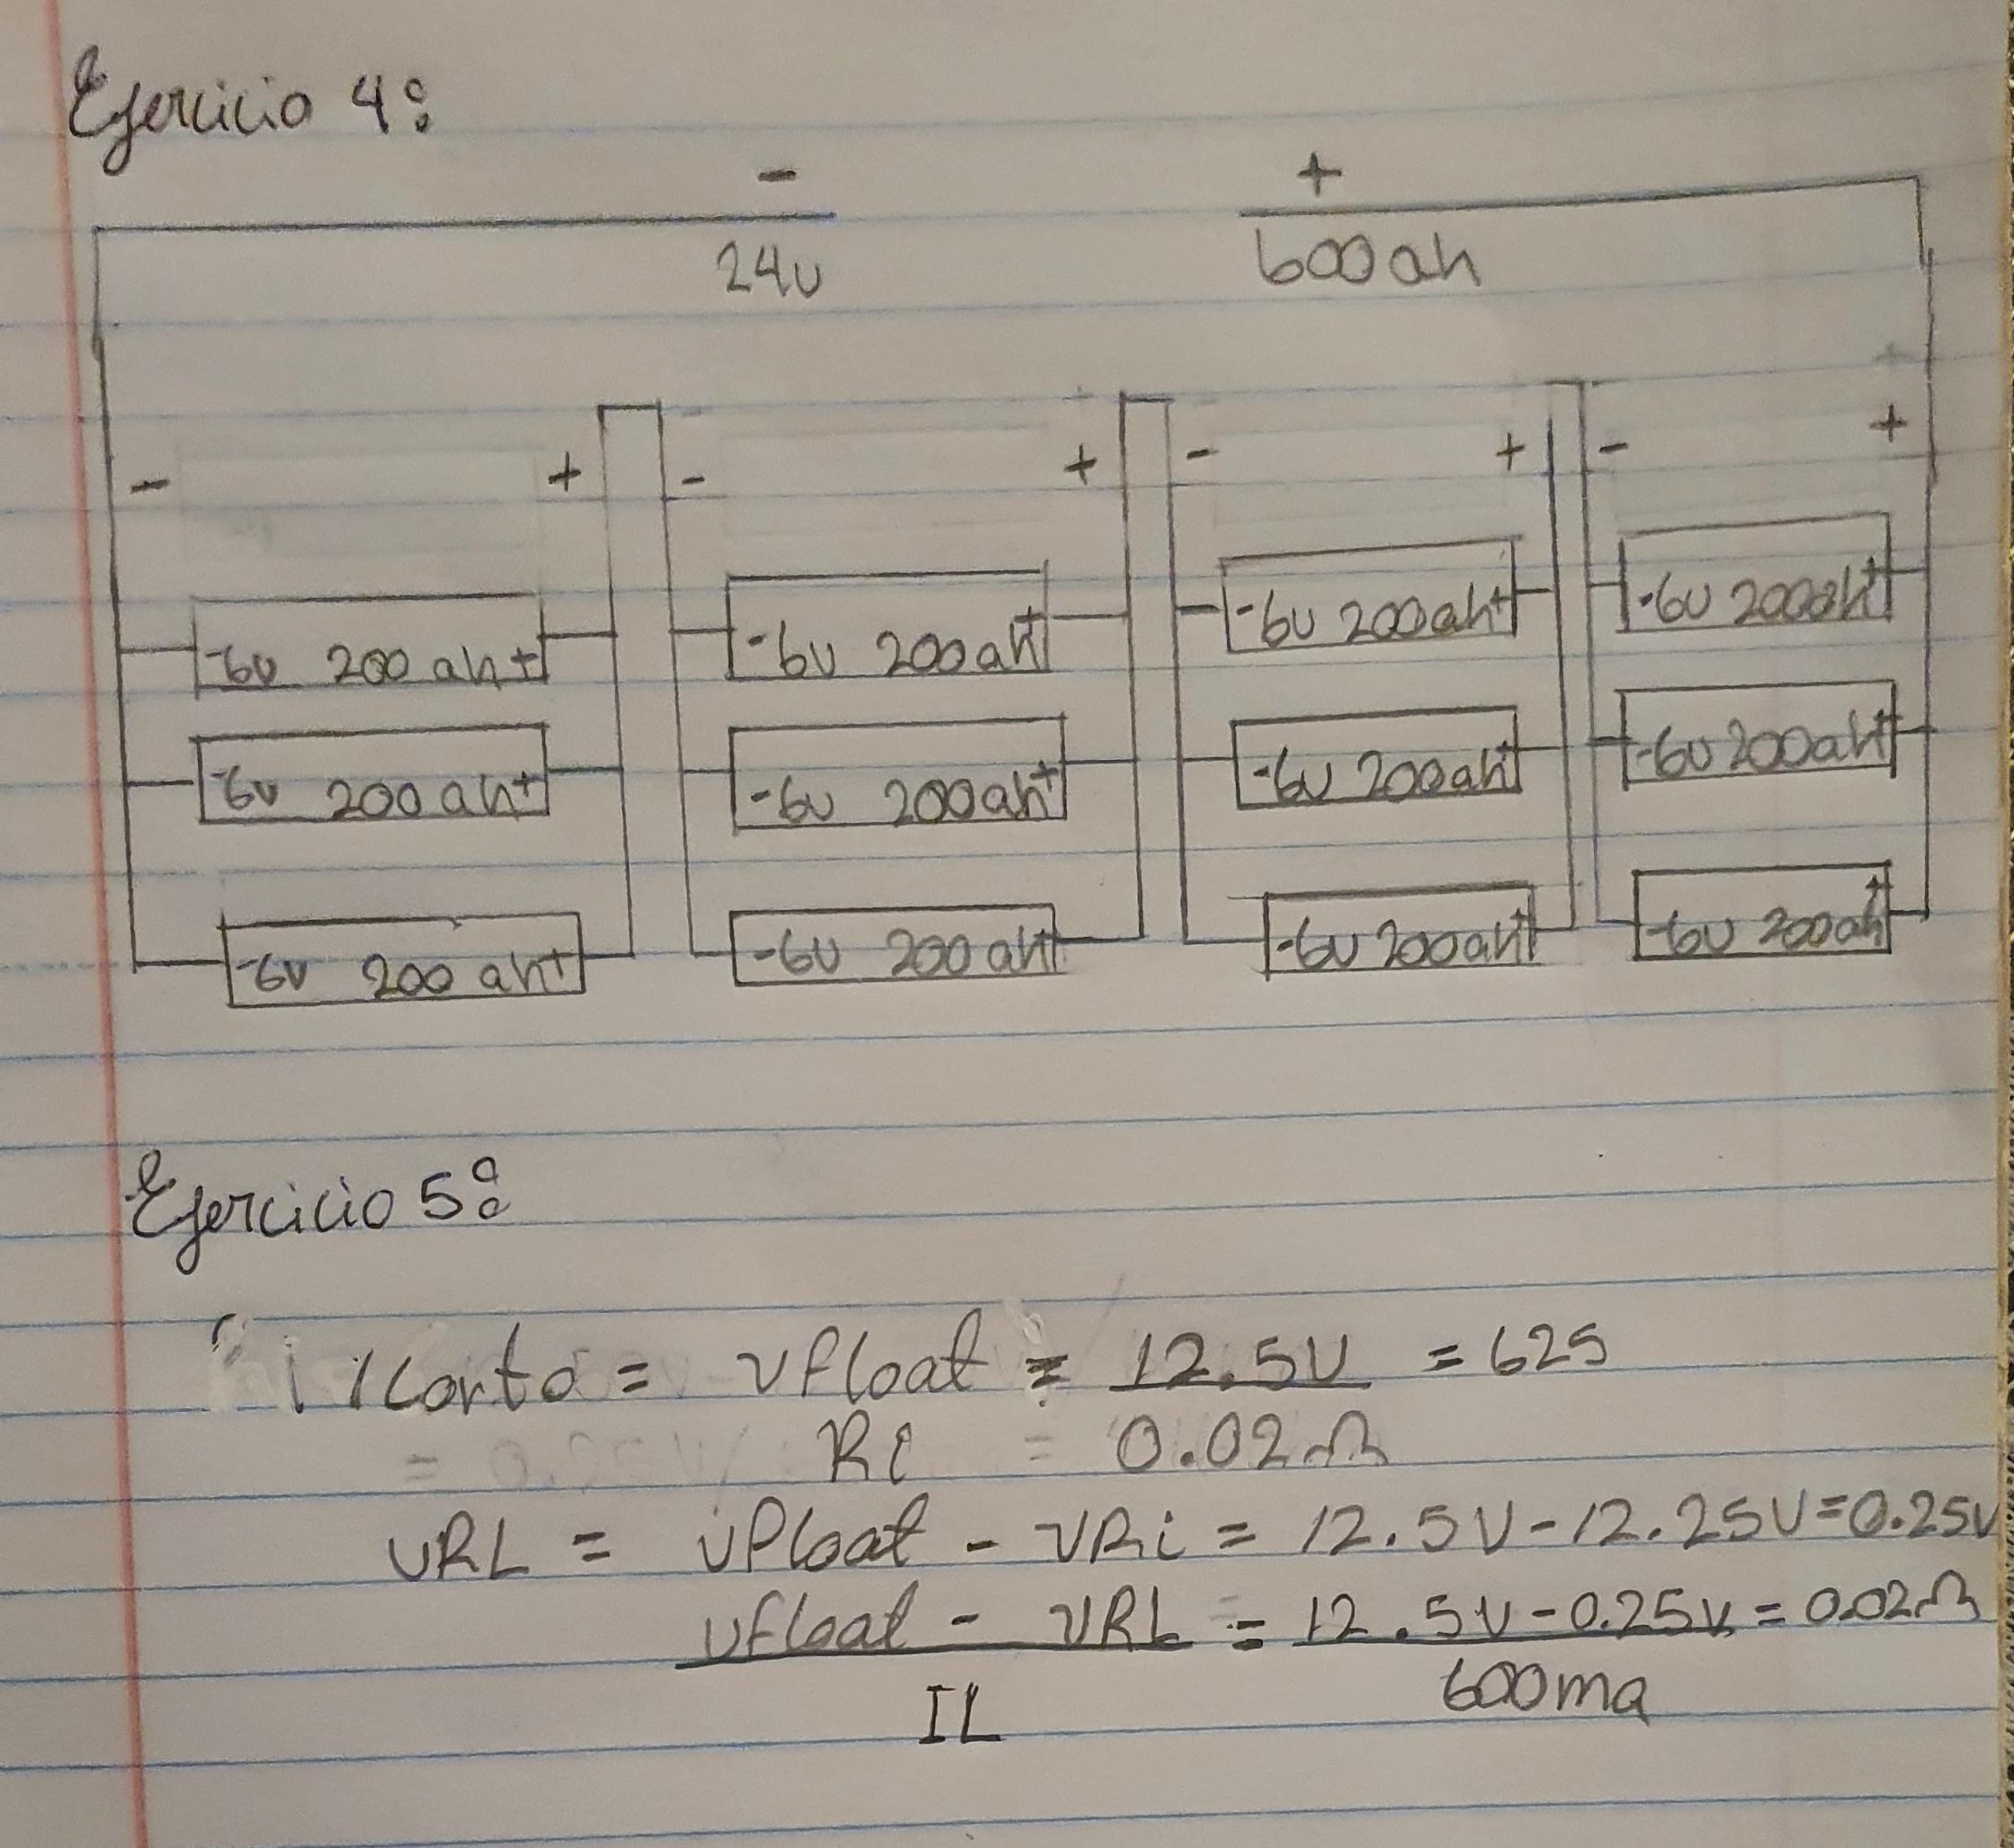 Ejercicio 4:
- +
24v 600ah
- + - + - + - +
-6v 200 ah+ -6v 200ah+ -6v 200ah+ -6v 200ah+
-6v 200 ah+ -6v 200ah+ -6v 200ah+ -6v 200ah+
-6v 200 ah+ -6v 200 ah+ -6v 200ah+ -6v 200ah+
Ejercicio 5:
Icorto = vfloat = 12.5v = 625
Ri = 0.02Ω
VRL = vfloat - VRi = 12.5V - 12.25V = 0.25v
vfloat - VRL = 12.5v - 0.25v = 0.02Ω
IL 600ma